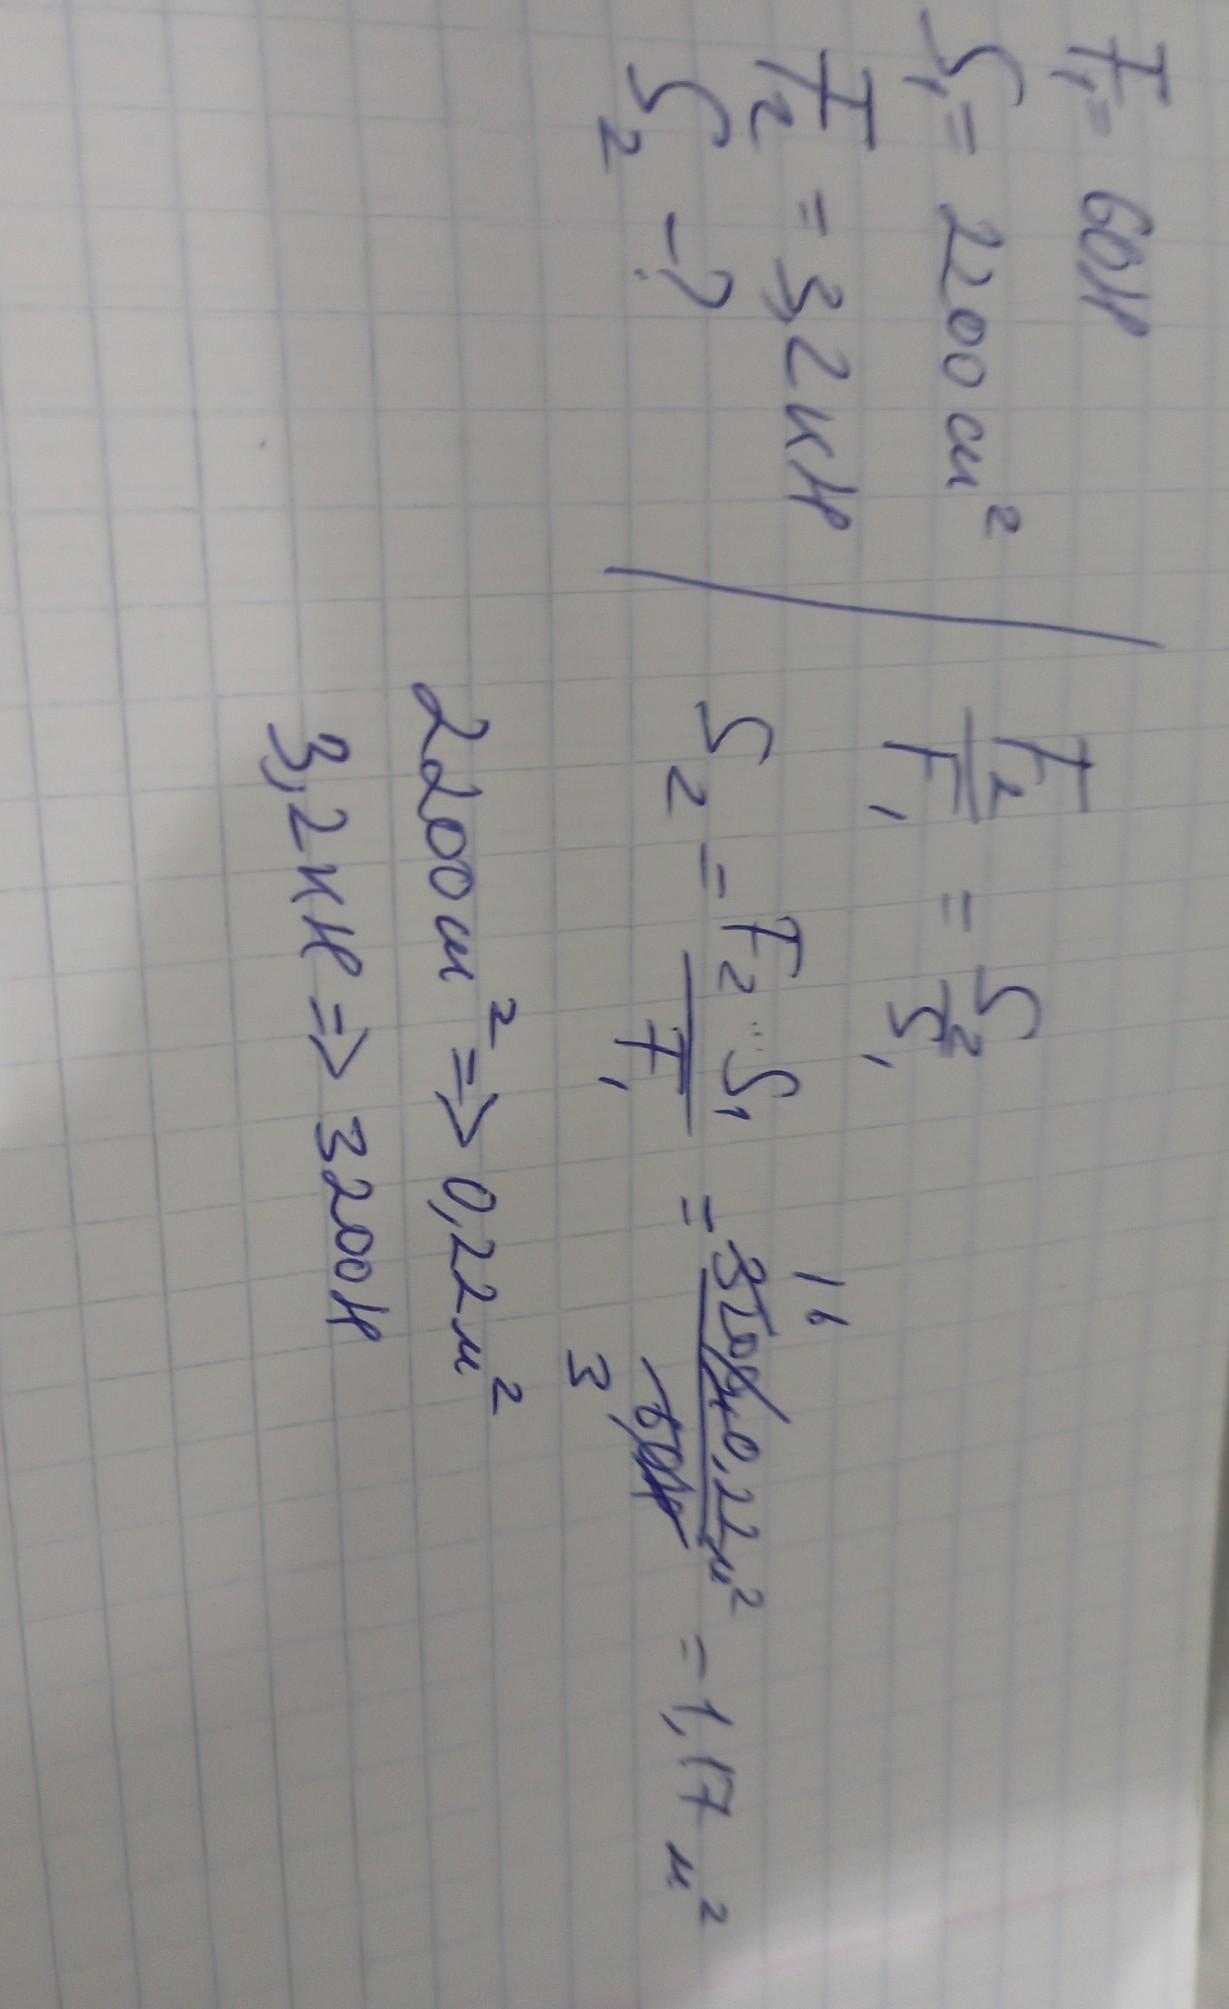 F₁= 60Н
S₁= 2200см²
F₂ = 3,2кН
S₂ -?
F₂/F₁ = S₂/S₁
S₂ = F₂·S₁/F₁ = 3200Н·0,22м²/60Н = 1,17 м²
16
3
2200см² => 0,22м²
3,2кН => 3200Н